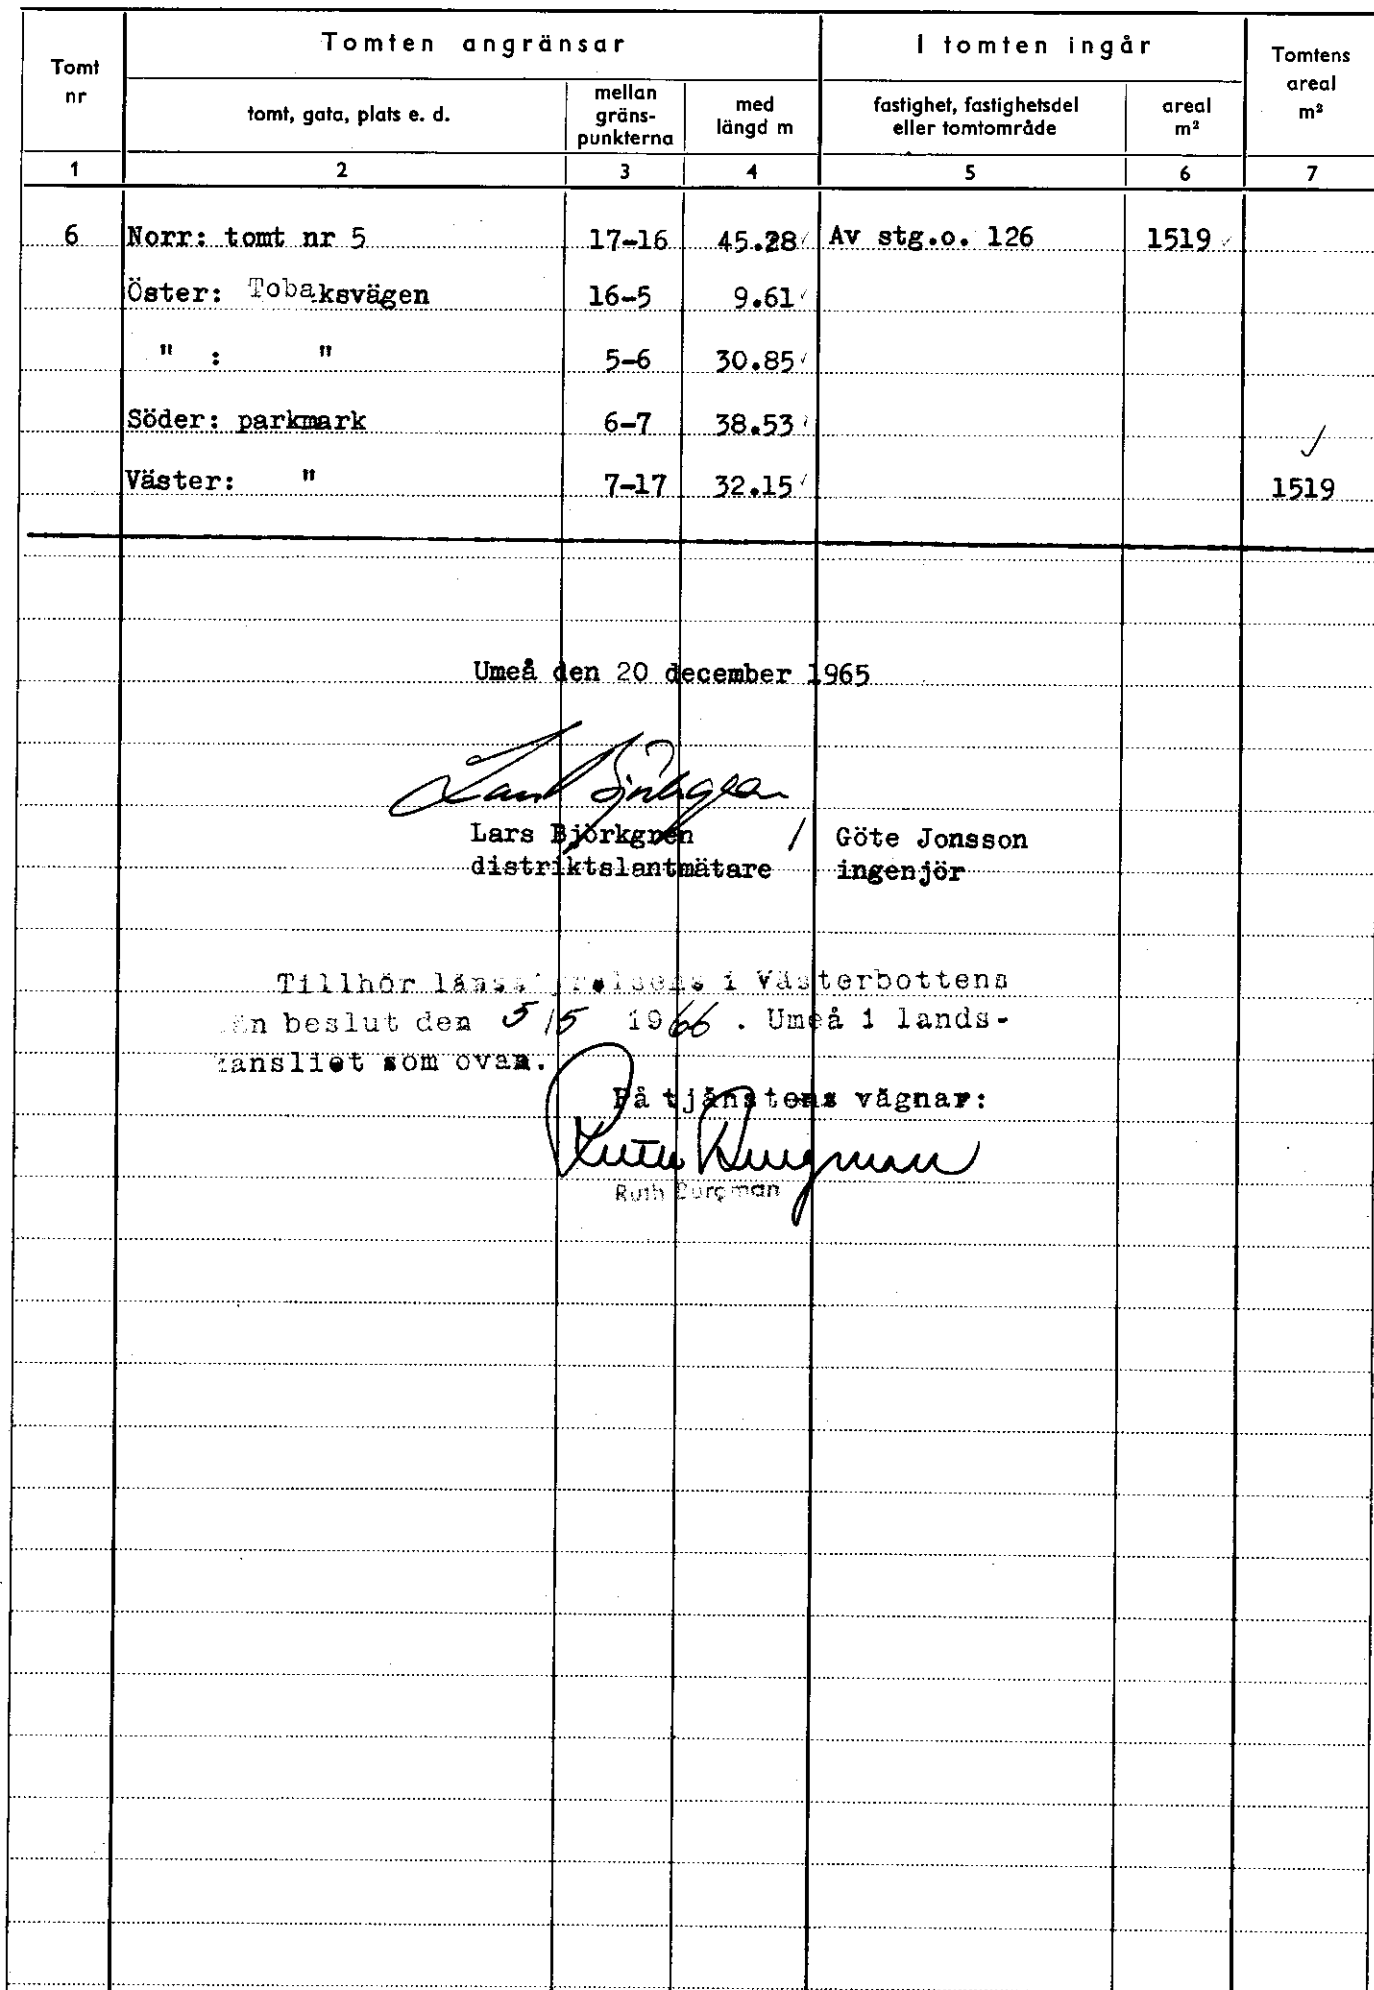 Tomt nr
Tomten angränsar
I tomten ingår
Tomtens areal m²
tomt, gata, plats e. d.
mellan gräns-punkterna
med längd m
fastighet, fastighetsdel eller tomtområde
areal m²
1 2 3 4 5 6 7
6 Norr: tomt nr 5 17-16 45.28 Av stg.o. 126 1519
Öster: Tobaksvägen 16-5 9.61
" : " 5-6 30.85
Söder: parkmark 6-7 38.53 ✓
Väster: " 7-17 32.15 1519
Umeå den 20 december 1965
Lars Björkgren / Göte Jonsson
distriktslantmätare ingenjör
Tillhör länsstyrelsens i Västerbottens
län beslut den 5/5 1966. Umeå i lands-
kansliet som ovan.
På tjänstens vägnar:
Ruth Burgman
Ruth Burgman